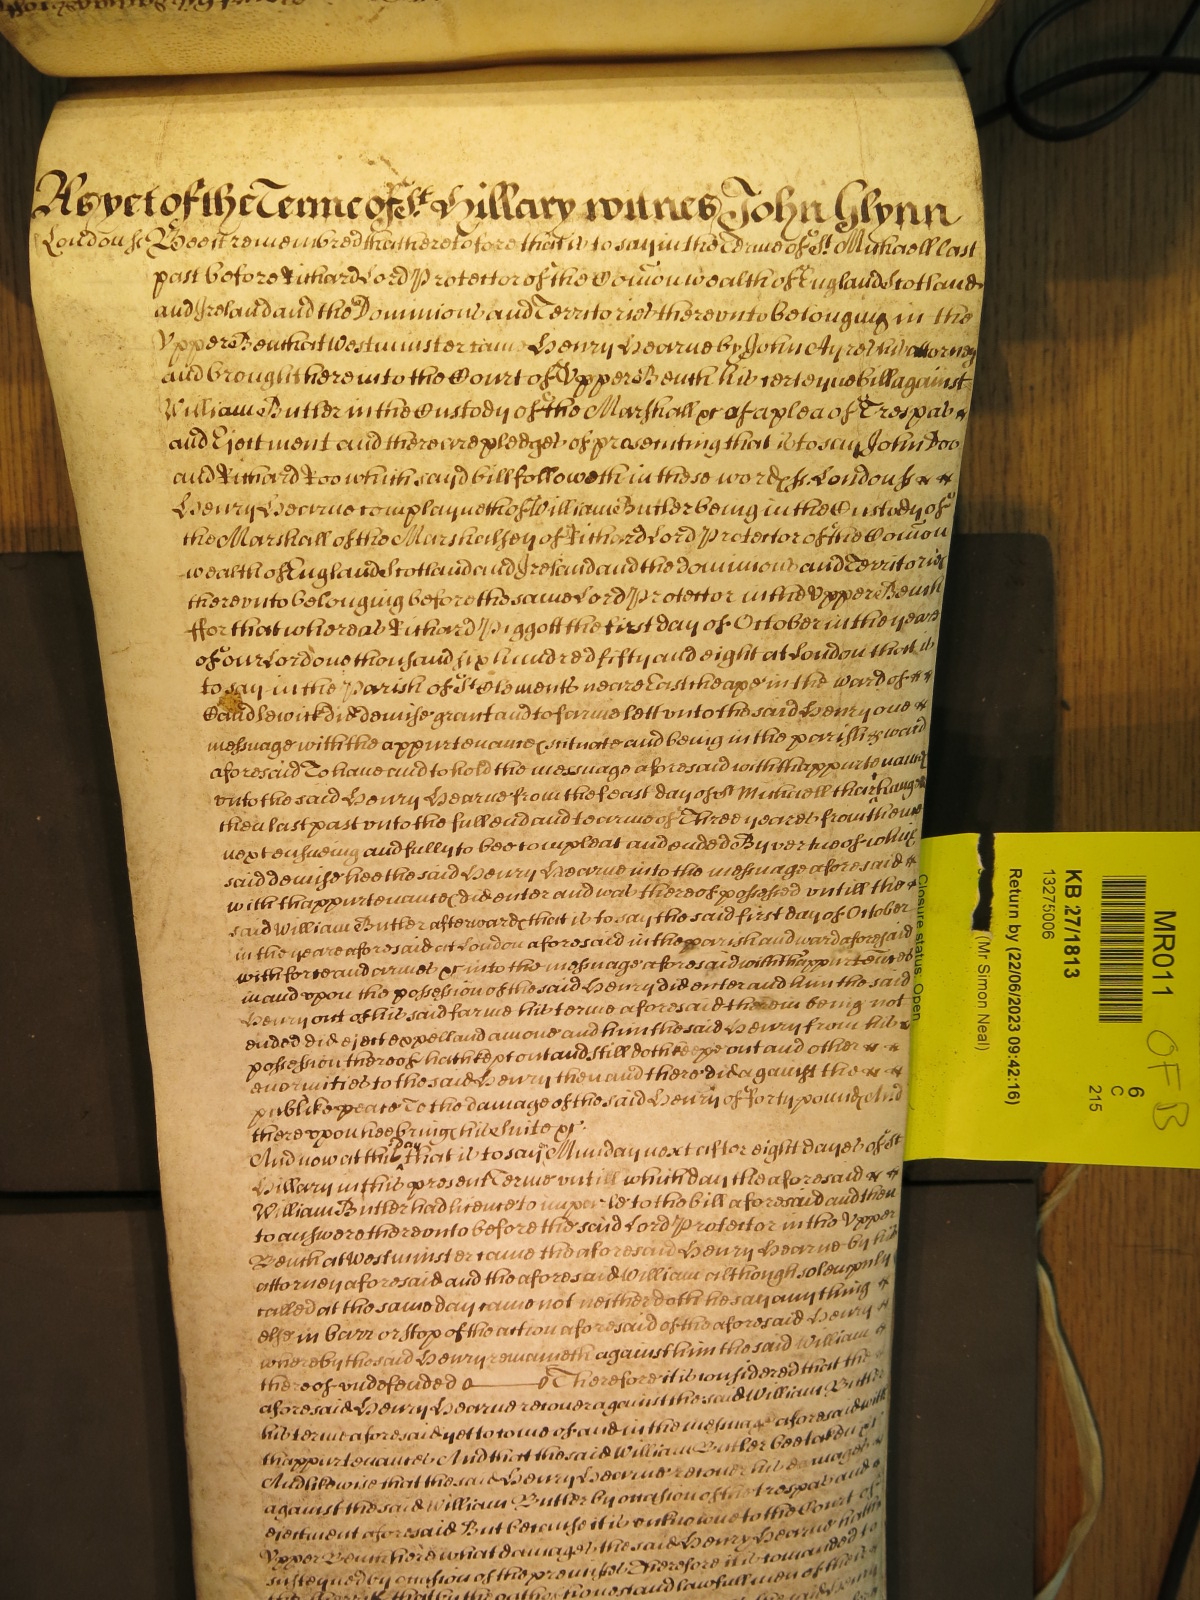 As yet of the Terme of St Hillary witnes John Glynn
London ss Bee it remembred that heretofore that is to say in the Terme of St Michaell last
past before Richard Lord Protector of the Comon wealth of England Scotland
and Ireland and the Dominions and Territories thereunto belonging in the
Upper Bench at Westminster came Henry Hearne by John Ayres his attorney
and brought here into the Court of Upper Bench his certeyne bill against
William Butler in the Custody of the Marshall &c of a plea of Trespas
and Ejectment and there are pledges of prosecuting that is to say John Doo
and Richard Roo which sayd bill followeth in these words ss London ss
Henry Hearne complayneth of William Butler being in the Custody of
the Marshall of the Marshalsey of Richard Lord Protector of the Comon
wealth of England Scotland and Ireland and the dominions and Territories
thereunto belonging before the same Lord Protector in the Upper Bench
ffor that whereas Richard Piggott the first day of October in the yeare
of our Lord one thousand six hundred fifty and eight at London that is
to say in the Parish of St Clements neare Eastcheape in the ward of
Candlewick did demise grant and to farme lett unto the said Henry one
messuage with the appurtenances situate and being in the parish & ward
aforesaid To have and to hold the messuage aforesaid with thappurtenances
unto the said Henry Hearne from the feast day of St Michaell tharchangell
then last past unto the full end and tearme of Three yeares from thence
next ensueing and fully to bee compleat and ended By vertue of which
said demise hee the said Henry Hearne into the messuage aforesaid
with thappurtenances did enter and was thereof possessed untill the
said William Butler afterwards that is to say the said first day of October
in the yeare aforesaid at London aforesaid in the parish and ward aforesaid
with force and armes &c into the messuage aforesaid with thappurtenances
in and upon the possession of the said Henry did enter and him the said
Henry out of his said farme his terme aforesaid therein being not
ended did eject expell and amove and him the said Henry from his
possession thereof hath kept out and still doth keepe out and other
enormities to the said Henry then and there did against the
publike peace To the damage of the said Henry of Forty pounds And
thereupon hee brings his Suite &c
And now at this day that is to say Munday next after eight dayes of St
Hillary in this present Terme untill which day the aforesaid
William Butler had licence to imparle to the bill aforesaid and then
to answere thereunto before the said Lord Protector in the Upper
Bench at Westminster came the aforesaid Henry Hearne by his
attorney aforesaid and the aforesaid William although solempnly
called at the same day came not neither doth he say any thing
else in barr or stop of the action aforesaid of the aforesaid Henry
whereby the said Henry remaineth against him the said William
thereof undefended Therefore it is considered that the
aforesaid Henry Hearne recover against the said William Butler
his terme aforesaid yet to come of and in the messuage aforesaid with
thappurtenances And that the said William Butler bee taken &c
And likewise that the said Henry Hearne recover his damages
against the said William Butler by occasion of the trespas and
ejectment aforesaid But because it is unknowne to the Court of
Upper Bench here what damages the said Henry Hearne hath
susteyned by occasion of the premises Therefore it is comanded to
the Sherriffs that by the oathes of honest and lawfull men of their
MR01 1
6
C
215
OF B
KB 27/1813
13275006
Return by (22/06/2023 09:42:16)
(Mr Simon Neal)
Closure status: Open